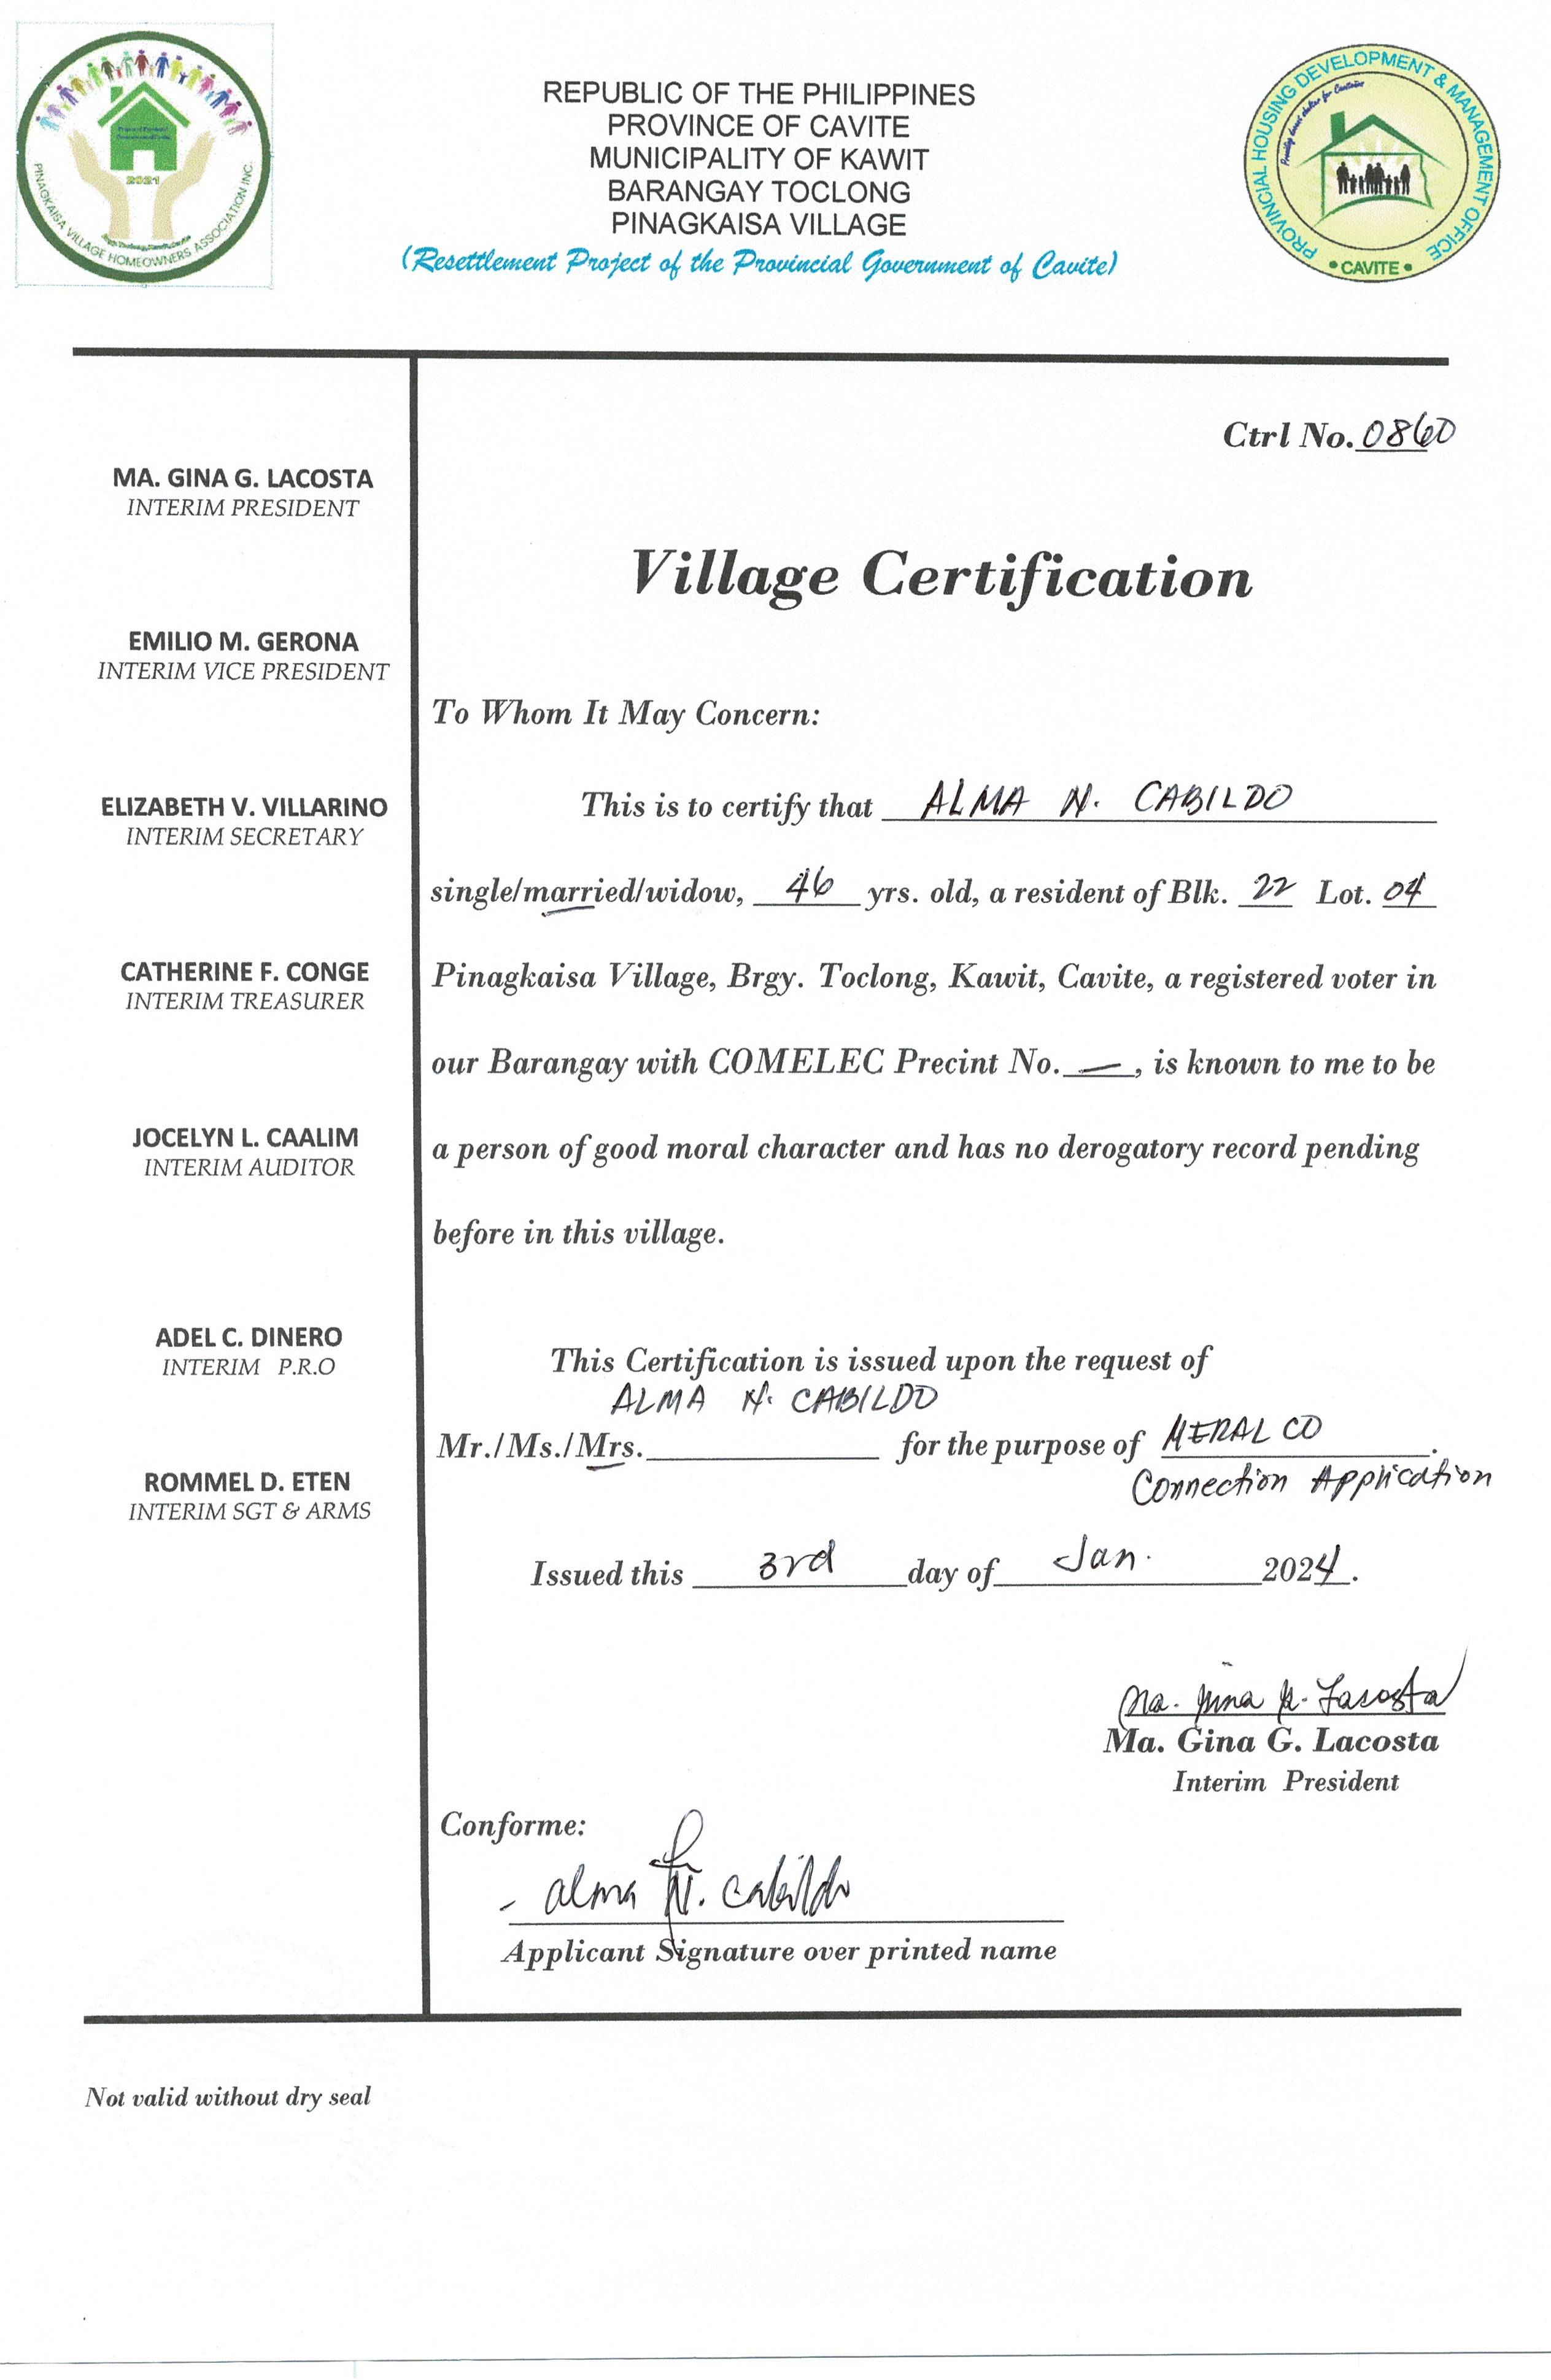 PINAGKAISA VILLAGE HOMEOWNERS ASSOCIATION INC.
2021
REPUBLIC OF THE PHILIPPINES
PROVINCE OF CAVITE
MUNICIPALITY OF KAWIT
BARANGAY TOCLONG
PINAGKAISA VILLAGE
(Resettlement Project of the Provincial Government of Cavite)
PROVINCIAL HOUSING DEVELOPMENT & MANAGEMENT OFFICE
• CAVITE •
MA. GINA G. LACOSTA
INTERIM PRESIDENT
EMILIO M. GERONA
INTERIM VICE PRESIDENT
ELIZABETH V. VILLARINO
INTERIM SECRETARY
CATHERINE F. CONGE
INTERIM TREASURER
JOCELYN L. CAALIM
INTERIM AUDITOR
ADEL C. DINERO
INTERIM P.R.O
ROMMEL D. ETEN
INTERIM SGT & ARMS
Ctrl No. 0860
Village Certification
To Whom It May Concern:
This is to certify that ALMA N. CABILDO
single/married/widow, 46 yrs. old, a resident of Blk. 22 Lot. 04
Pinagkaisa Village, Brgy. Toclong, Kawit, Cavite, a registered voter in
our Barangay with COMELEC Precint No. —, is known to me to be
a person of good moral character and has no derogatory record pending
before in this village.
This Certification is issued upon the request of
ALMA N. CABILDO
Mr./Ms./Mrs. for the purpose of MERALCO.
Connection Application
Issued this 3rd day of Jan. 2024.
Ma. Gina G. Lacosta
Ma. Gina G. Lacosta
Interim President
Conforme:
- alma N. Cabildo
Applicant Signature over printed name
Not valid without dry seal